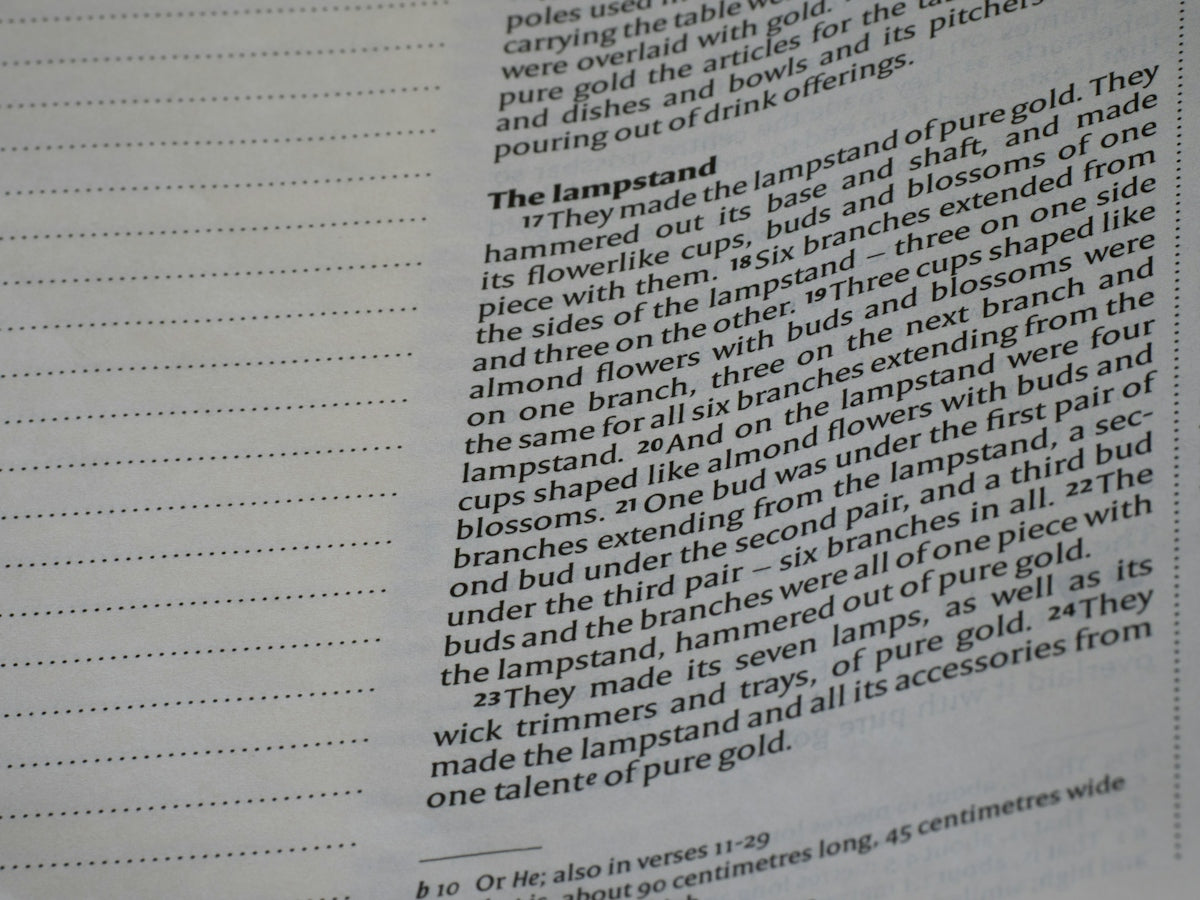 poles used
carrying the table
were overlaid with gold.
pure gold the articles for the
and dishes and bowls and its pitchers
pouring out of drink offerings.
The lampstand
17 They made the lampstand of pure gold. They
hammered out its base and shaft, and made
its flowerlike cups, buds and blossoms of one
piece with them. 18 Six branches extended from
the sides of the lampstand – three on one side
and three on the other. 19 Three cups shaped like
almond flowers with buds and blossoms were
on one branch, three on the next branch and
the same for all six branches extending from the
lampstand. 20 And on the lampstand were four
cups shaped like almond flowers with buds and
blossoms. 21 One bud was under the first pair of
branches extending from the lampstand, a sec-
ond bud under the second pair, and a third bud
under the third pair – six branches in all. 22 The
buds and the branches were all of one piece with
the lampstand, hammered out of pure gold.
23 They made its seven lamps, as well as its
wick trimmers and trays, of pure gold. 24 They
made the lampstand and all its accessories from
one talent e of pure gold.
b 10 Or He; also in verses 11-29
is, about 90 centimetres long, 45 centimetres wide